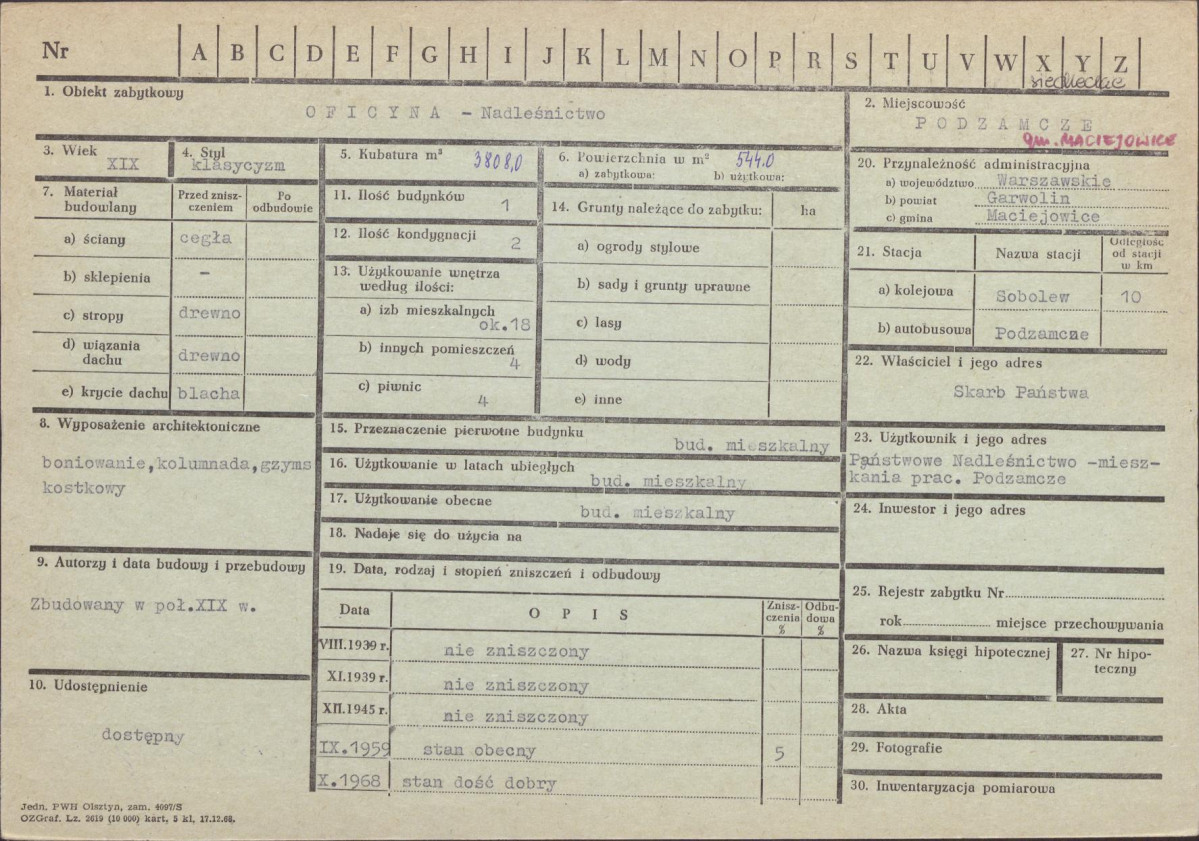 Nr A B C D E F G H I J K L M N O P R S T U V W X Y Z
siedleckie
1. Obiekt zabytkowy
OFICYNA - Nadleśnictwo
2. Miejscowość
PODZAMCZE
gm. MACIEJOWICE
3. Wiek
XIX
4. Styl
klasycyzm
5. Kubatura m³ 3808,0
6. Powierzchnia w m² 544.0
a) zabytkowa: b) użytkowa:
7. Materiał budowlany
Przed zniszczeniem
Po odbudowie
a) ściany cegła
b) sklepienia -
c) stropy drewno
d) wiązania dachu drewno
e) krycie dachu blacha
8. Wyposażenie architektoniczne
boniowanie,kolumnada,gzyms
kostkowy
9. Autorzy i data budowy i przebudowy
Zbudowany w poł.XIX w.
10. Udostępnienie
dostępny
11. Ilość budynków 1
12. Ilość kondygnacji 2
13. Użytkowanie wnętrza
według ilości:
a) izb mieszkalnych
ok.18
b) innych pomieszczeń
4
c) piwnic
4
14. Grunty należące do zabytku: ha
a) ogrody stylowe
b) sady i grunty uprawne
c) lasy
d) wody
e) inne
15. Przeznaczenie pierwotne budynku
bud. mieszkalny
16. Użytkowanie w latach ubiegłych
bud. mieszkalny
17. Użytkowanie obecne
bud. mieszkalny
18. Nadaje się do użycia na
19. Data, rodzaj i stopień zniszczeń i odbudowy
Data OPIS Zniszczenia % Odbudowa %
VIII.1939 r. nie zniszczony
XI.1939 r. nie zniszczony
XII.1945 r. nie zniszczony
IX.1959 stan obecny 5
X.1968 stan dość dobry
20. Przynależność administracyjna
a) województwo Warszawskie
b) powiat Garwolin
c) gmina Maciejowice
21. Stacja Nazwa stacji Odległość od stacji w km
a) kolejowa Sobolew 10
b) autobusowa Podzamcze
22. Właściciel i jego adres
Skarb Państwa
23. Użytkownik i jego adres
Państwowe Nadleśnictwo -miesz-
kania prac. Podzamcze
24. Inwestor i jego adres
25. Rejestr zabytku Nr
rok miejsce przechowywania
26. Nazwa księgi hipotecznej
27. Nr hipo-
teczny
28. Akta
29. Fotografie
30. Inwentaryzacja pomiarowa
Jedn. PWH Olsztyn, zam. 4097/S
OZGraf. Lz. 2619 (10 000) kart. 5 kl. 17.12.68.